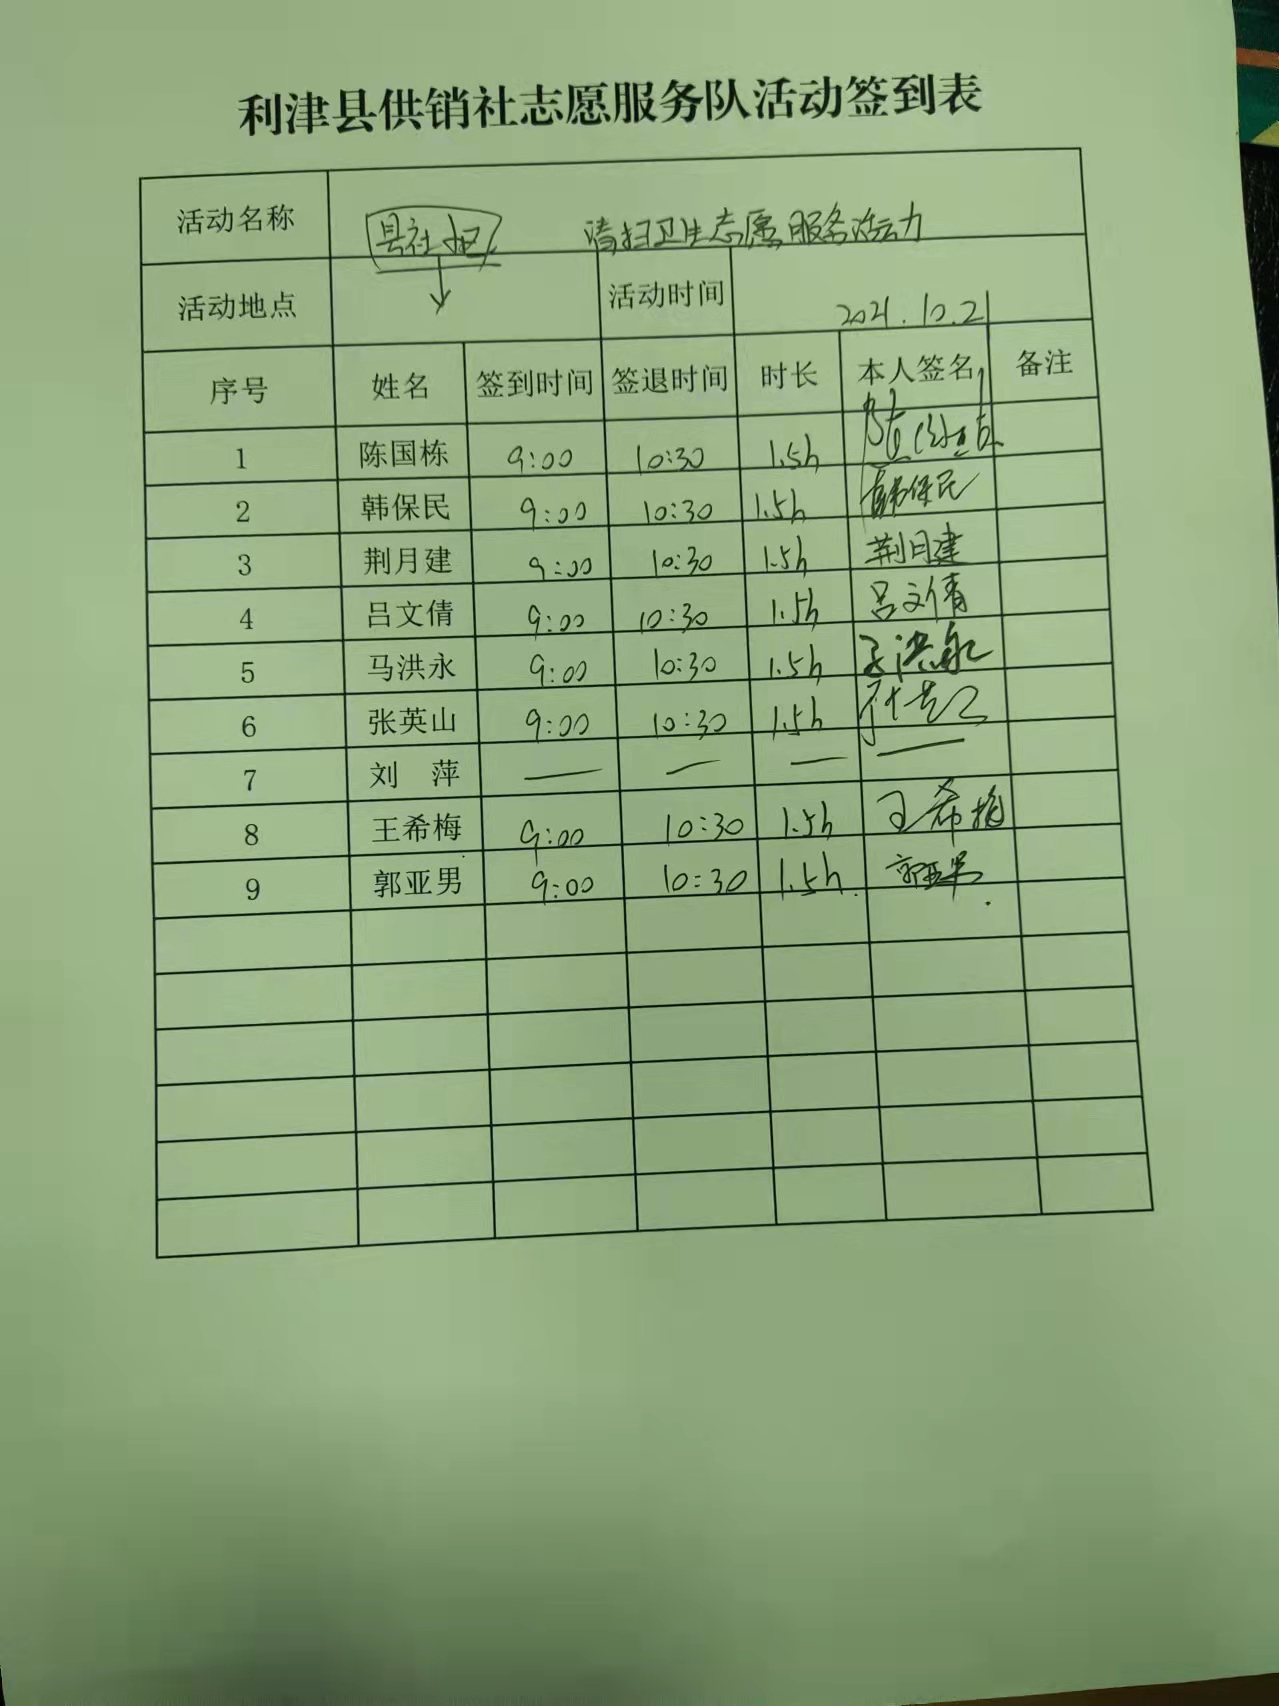 利津县供销社志愿服务队活动签到表
活动名称 县社 清扫卫生志愿服务活动
活动地点 活动时间 2021.10.21
序号 姓名 签到时间 签退时间 时长 本人签名 备注
1 陈国栋 9:00 10:30 1.5h
2 韩保民 9:00 10:30 1.5h 韩保民
3 荆月建 9:00 10:30 1.5h 荆月建
4 吕文倩 9:00 10:30 1.5h 吕文倩
5 马洪永 9:00 10:30 1.5h 马洪永
6 张英山 9:00 10:30 1.5h
7 刘 萍 — — — —
8 王希梅 9:00 10:30 1.5h 王希梅
9 郭亚男 9:00 10:30 1.5h 郭亚男